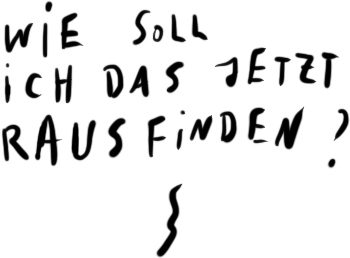 WIE SOLL
ICH DAS JETZT
RAUSFINDEN?